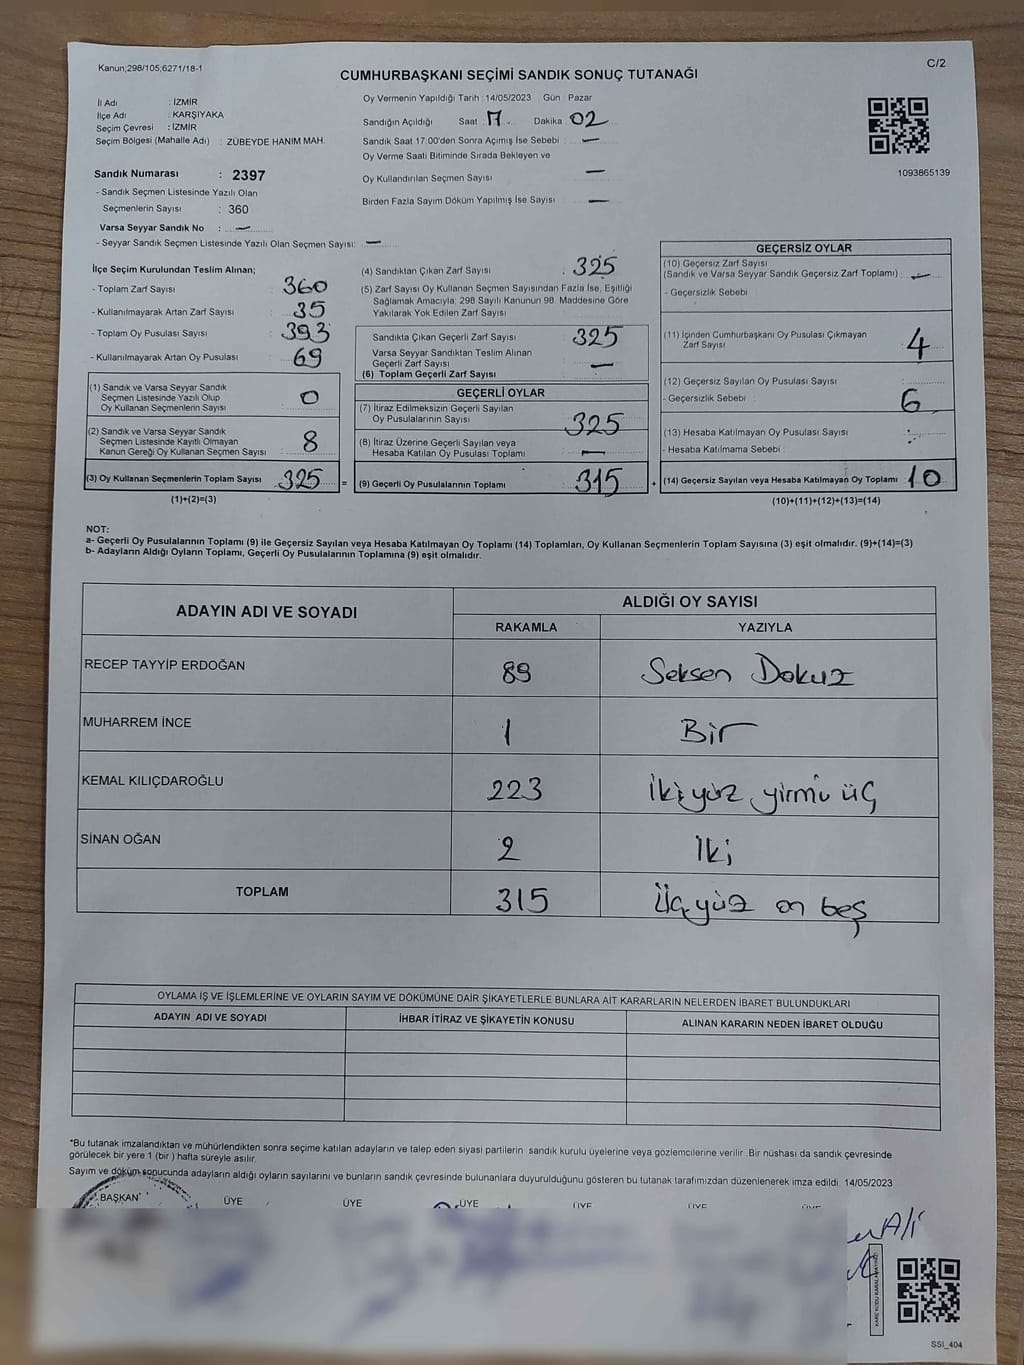 Kanun;298/105;6271/18-1
C/2
CUMHURBAŞKANI SEÇİMİ SANDIK SONUÇ TUTANAĞI
İl Adı : İZMİR
İlçe Adı : KARŞIYAKA
Seçim Çevresi : İZMİR
Seçim Bölgesi (Mahalle Adı) : ZÜBEYDE HANIM MAH.
Sandık Numarası : 2397
- Sandık Seçmen Listesinde Yazılı Olan
Seçmenlerin Sayısı : 360
Varsa Seyyar Sandık No : —
- Seyyar Sandık Seçmen Listesinde Yazılı Olan Seçmen Sayısı: —
Oy Vermenin Yapıldığı Tarih : 14/05/2023 Gün : Pazar
Sandığın Açıldığı Saat 17 Dakika 02
Sandık Saat 17:00'den Sonra Açımış İse Sebebi : —
Oy Verme Saati Bitiminde Sırada Bekleyen ve
Oy Kullandırılan Seçmen Sayısı —
Birden Fazla Sayım Döküm Yapılmış İse Sayısı : —
1093865139
İlçe Seçim Kurulundan Teslim Alınan;
- Toplam Zarf Sayısı : 360
- Kullanılmayarak Artan Zarf Sayısı : 35
- Toplam Oy Pusulası Sayısı : 393
- Kullanılmayarak Artan Oy Pusulası : 69
(1) Sandık ve Varsa Seyyar Sandık
Seçmen Listesinde Yazılı Olup
Oy Kullanan Seçmenlerin Sayısı : 0
(2) Sandık ve Varsa Seyyar Sandık
Seçmen Listesinde Kayıtlı Olmayan
Kanun Gereği Oy Kullanan Seçmen Sayısı : 8
(3) Oy Kullanan Seçmenlerin Toplam Sayısı 325 =
(1)+(2)=(3)
(4) Sandıktan Çıkan Zarf Sayısı : 325
(5) Zarf Sayısı Oy Kullanan Seçmen Sayısından Fazla İse, Eşitliği
Sağlamak Amacıyla, 298 Sayılı Kanunun 98. Maddesine Göre
Yakılarak Yok Edilen Zarf Sayısı
Sandıkta Çıkan Geçerli Zarf Sayısı : 325
Varsa Seyyar Sandıktan Teslim Alınan
Geçerli Zarf Sayısı : —
(6) Toplam Geçerli Zarf Sayısı
GEÇERLİ OYLAR
(7) İtiraz Edilmeksizin Geçerli Sayılan
Oy Pusulalarının Sayısı 325
(8) İtiraz Üzerine Geçerli Sayılan veya
Hesaba Katılan Oy Pusulası Toplamı —
(9) Geçerli Oy Pusulalarının Toplamı 315 +
GEÇERSİZ OYLAR
(10) Geçersiz Zarf Sayısı
(Sandık ve Varsa Seyyar Sandık Geçersiz Zarf Toplamı) : —
- Geçersizlik Sebebi
(11) İçinden Cumhurbaşkanı Oy Pusulası Çıkmayan
Zarf Sayısı 4
(12) Geçersiz Sayılan Oy Pusulası Sayısı :
- Geçersizlik Sebebi : 6
(13) Hesaba Katılmayan Oy Pusulası Sayısı :
- Hesaba Katılmama Sebebi :
(14) Geçersiz Sayılan veya Hesaba Katılmayan Oy Toplamı 10
(10)+(11)+(12)+(13)=(14)
NOT:
a- Geçerli Oy Pusulalarının Toplamı (9) ile Geçersiz Sayılan veya Hesaba Katılmayan Oy Toplamı (14) Toplamları, Oy Kullanan Seçmenlerin Toplam Sayısına (3) eşit olmalıdır. (9)+(14)=(3)
b- Adayların Aldığı Oyların Toplamı, Geçerli Oy Pusulalarının Toplamına (9) eşit olmalıdır.
ADAYIN ADI VE SOYADI ALDIĞI OY SAYISI
RAKAMLA YAZIYLA
RECEP TAYYİP ERDOĞAN 89 Seksen Dokuz
MUHARREM İNCE 1 Bir
KEMAL KILIÇDAROĞLU 223 İkiyüz yirmi üç
SİNAN OĞAN 2 İki
TOPLAM 315 Üçyüz on beş
OYLAMA İŞ VE İŞLEMLERİNE VE OYLARIN SAYIM VE DÖKÜMÜNE DAİR ŞİKAYETLERLE BUNLARA AİT KARARLARIN NELERDEN İBARET BULUNDUKLARI
ADAYIN ADI VE SOYADI İHBAR İTİRAZ VE ŞİKAYETİN KONUSU ALINAN KARARIN NEDEN İBARET OLDUĞU
*Bu tutanak imzalandıktan ve mühürlendikten sonra seçime katılan adayların ve talep eden siyasi partilerin sandık kurulu üyelerine veya gözlemcilerine verilir. Bir nüshası da sandık çevresinde
görülecek bir yere 1 (bir ) hafta süreyle asılır.
Sayım ve döküm sonucunda adayların aldığı oyların sayılarını ve bunların sandık çevresinde bulunanlara duyurulduğunu gösteren bu tutanak tarafımızdan düzenlenerek imza edildi. 14/05/2023
BAŞKAN ÜYE ÜYE ÜYE ÜYE ÜYE ÜYE
Ali
SSI_404